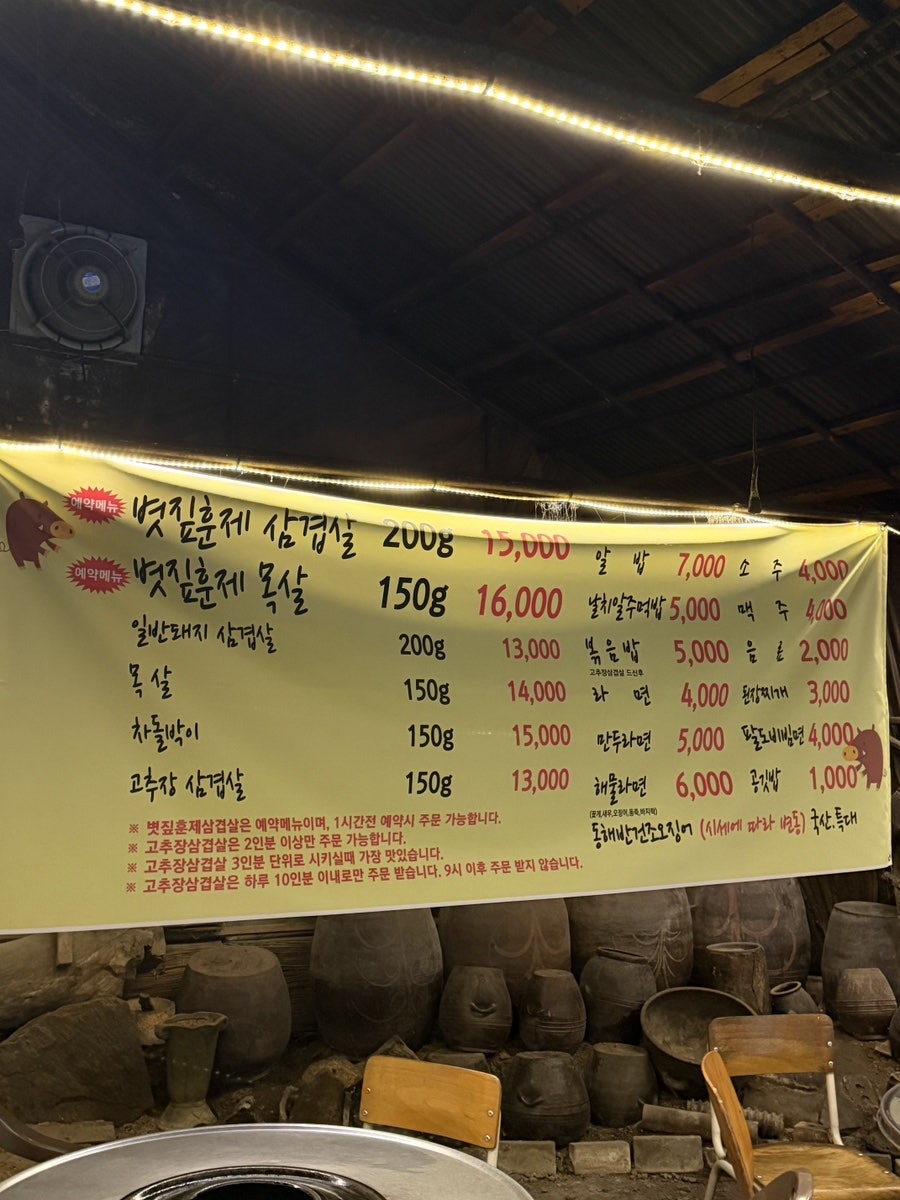 예약메뉴 볏짚훈제 삼겹살 200g 15,000
예약메뉴 볏짚훈제 목살 150g 16,000
일반돼지 삼겹살 200g 13,000
목살 150g 14,000
차돌박이 150g 15,000
고추장 삼겹살 150g 13,000
※ 볏짚훈제삼겹살은 예약메뉴이며, 1시간전 예약시 주문 가능합니다.
※ 고추장삼겹살은 2인분 이상만 주문 가능합니다.
※ 고추장삼겹살 3인분 단위로 시키실때 가장 맛있습니다.
※ 고추장삼겹살은 하루 10인분 이내로만 주문 받습니다. 9시 이후 주문 받지 않습니다.
알 밥 7,000 소 주 4,000
날치알주먹밥 5,000 맥 주 4,000
볶음밥 5,000 음 료 2,000
고추장삼겹살 드신후
라 면 4,000 된장찌개 3,000
만두라면 5,000 팔도비빔면 4,000
해물라면 6,000 공깃밥 1,000
(꽃게,새우,오징어,홍합,바지락)
동해반건조오징어 (시세에 따라 변동) 국산.특대